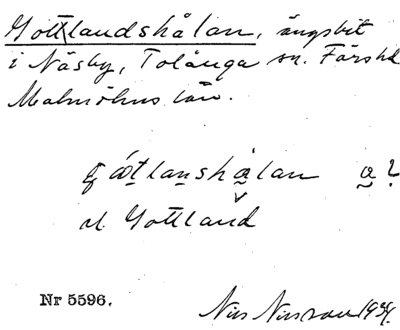 Gottlandshålan, ängsbit
i Näsby, Tolånga sn. Färs hd
Malmöhus län.
gotlanshålan a?
av Gottland
Nr 5596.
Nils Nilsson 1934.